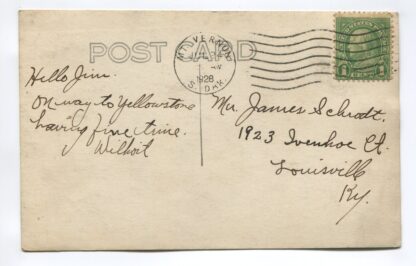 POST CARD
MT. VERNON
JUL
1928
S. DAK.
1
Hello Jim.
On way to Yellowstone
having fine time.
Wilhoit
Mr. James Schrodt.
1923 Ivenhoe Ct.
Louisville
Ky.